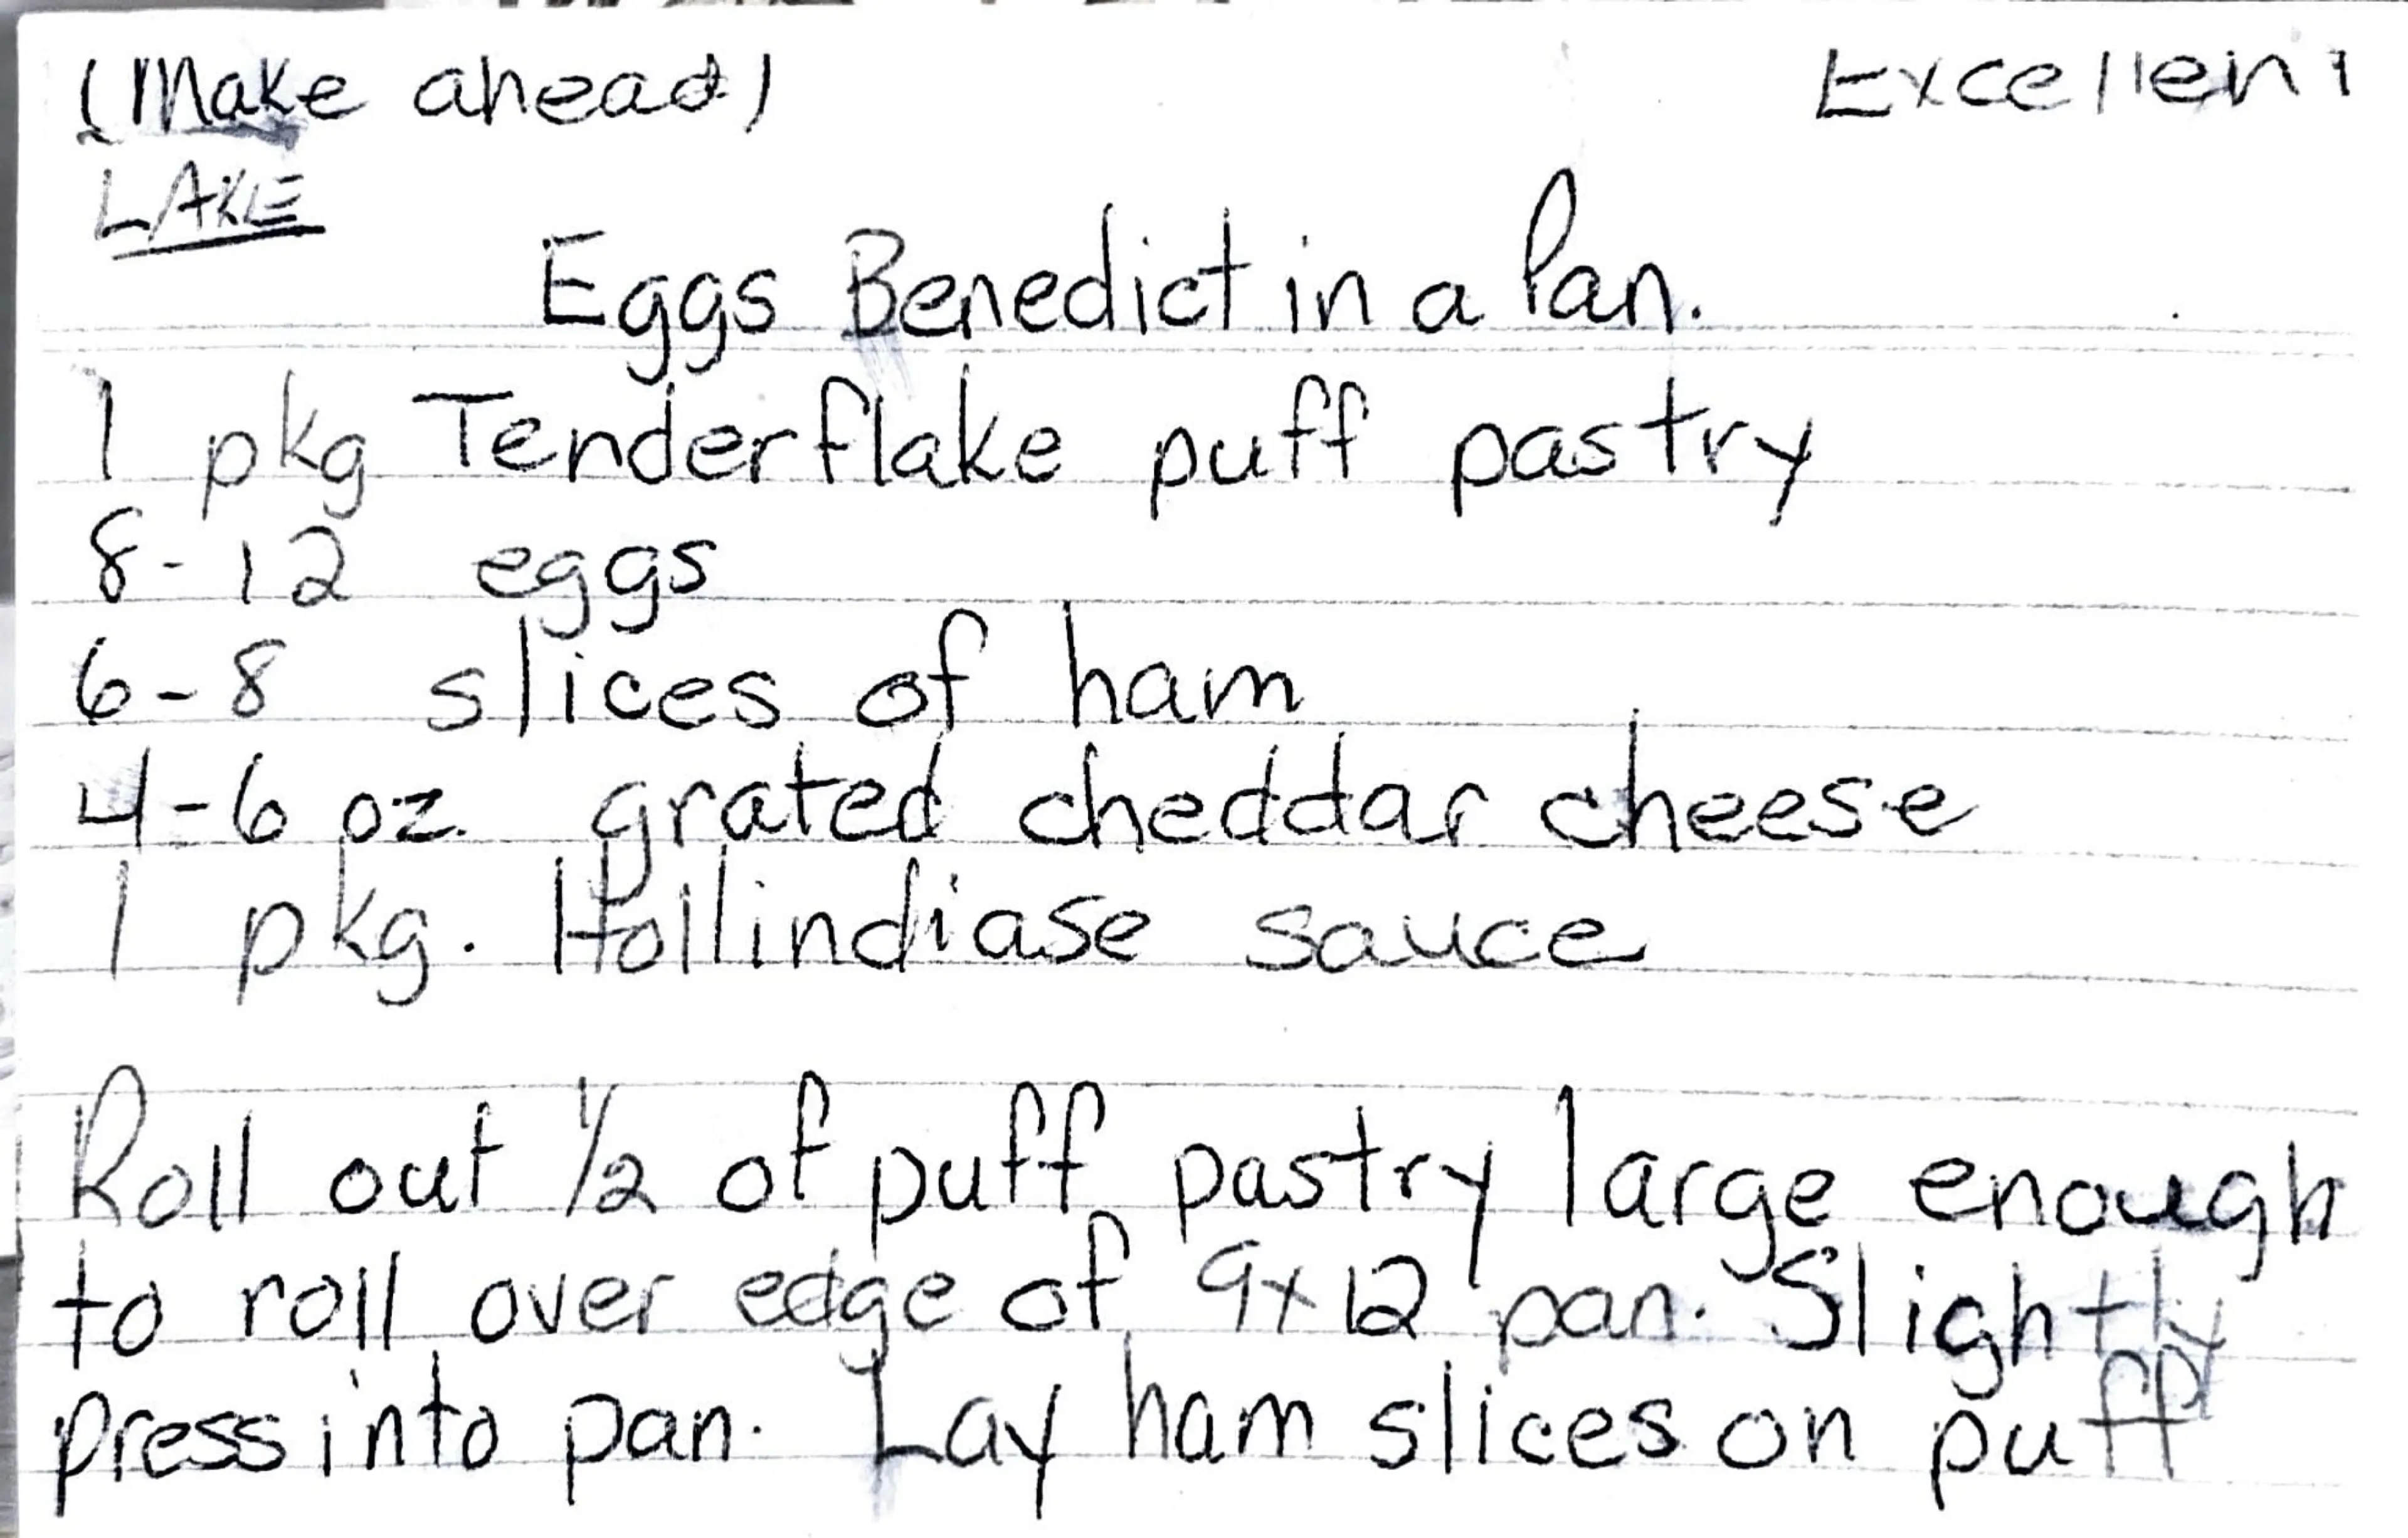 (Make ahead) Excellent
LAKE
Eggs Benedict in a Pan.
1 pkg Tenderflake puff pastry
8-12 eggs
6-8 slices of ham
4-6 oz. grated cheddar cheese
1 pkg. Hollindiase sauce
Roll out 1/2 of puff pastry large enough
to roll over edge of 9x12 pan. Slightly
press into pan. Lay ham slices on puff